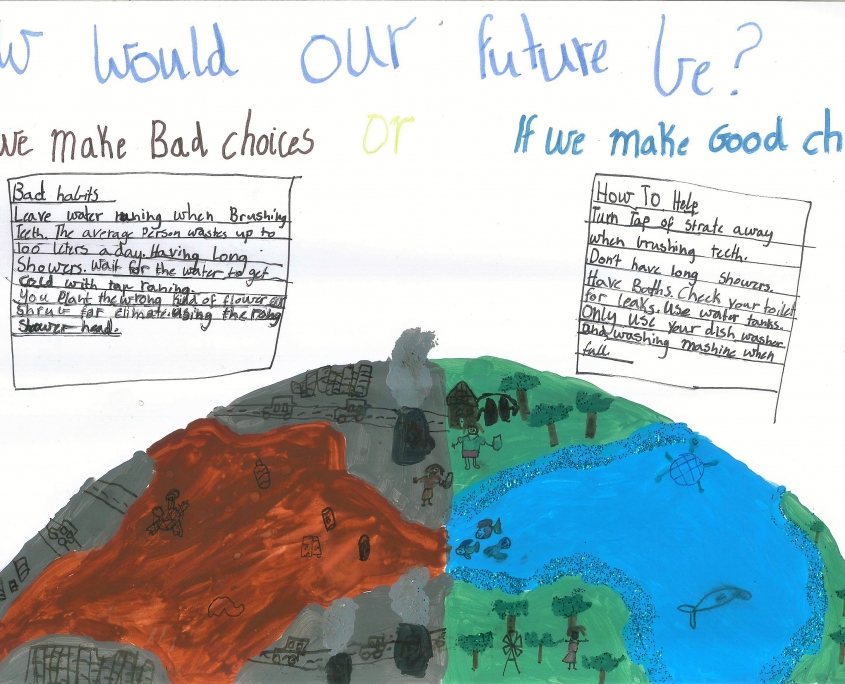 w would our future be?
we make Bad choices or If we make Good ch
Bad habits
Leave water runing when Brushing
Teeth. The average Person wastes up to
100 liters a day. Having Long
Showers. Wait for the water to get
cold with tap runing.
You Plant the wrong kind of flower or
shrub for climate. Using the rong
shower head.
How To Help
Turn Tap of strate away
when brushing teeth.
Don't have long showers.
Have Baths. Check your toilet
for leaks. Use water tanks.
Only Use your dish washer
and washing mashine when
full